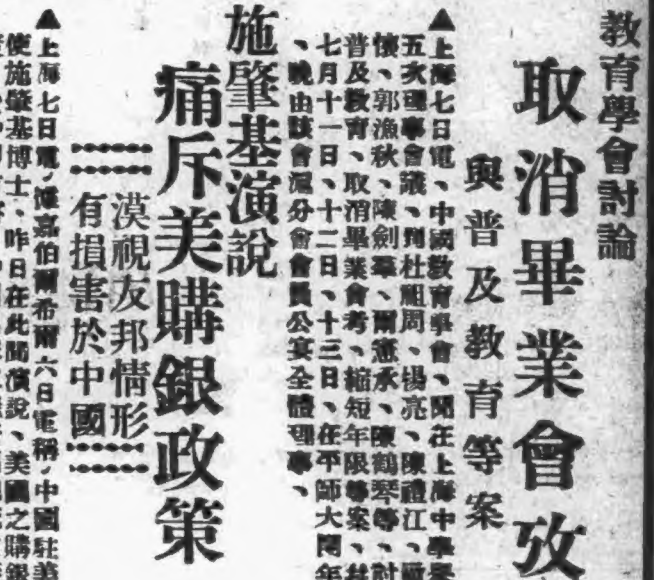 教育學會討論
取消畢業會攷
與普及教育等案
▲上海七日電、中國教育學會、開在上海中學舉
五次理事會議、到杜祖周、楊亮、陳禮江、
懷、郭漁秋、陳劍、承、陳鶴琴等、討
普及教育、取消畢業會考、縮短年限等案、
七月十一日、十二日、十三日、在平師大開年
、晚由該會滬分會會員公宴全體理事、
施肇基演說
痛斥美購銀政策
漠視友邦情形
有損害於中國
▲上海七日電、嘉伯爾希爾六日電稱、中國駐美
使施肇基博士、昨日在此間演說、美國之購銀